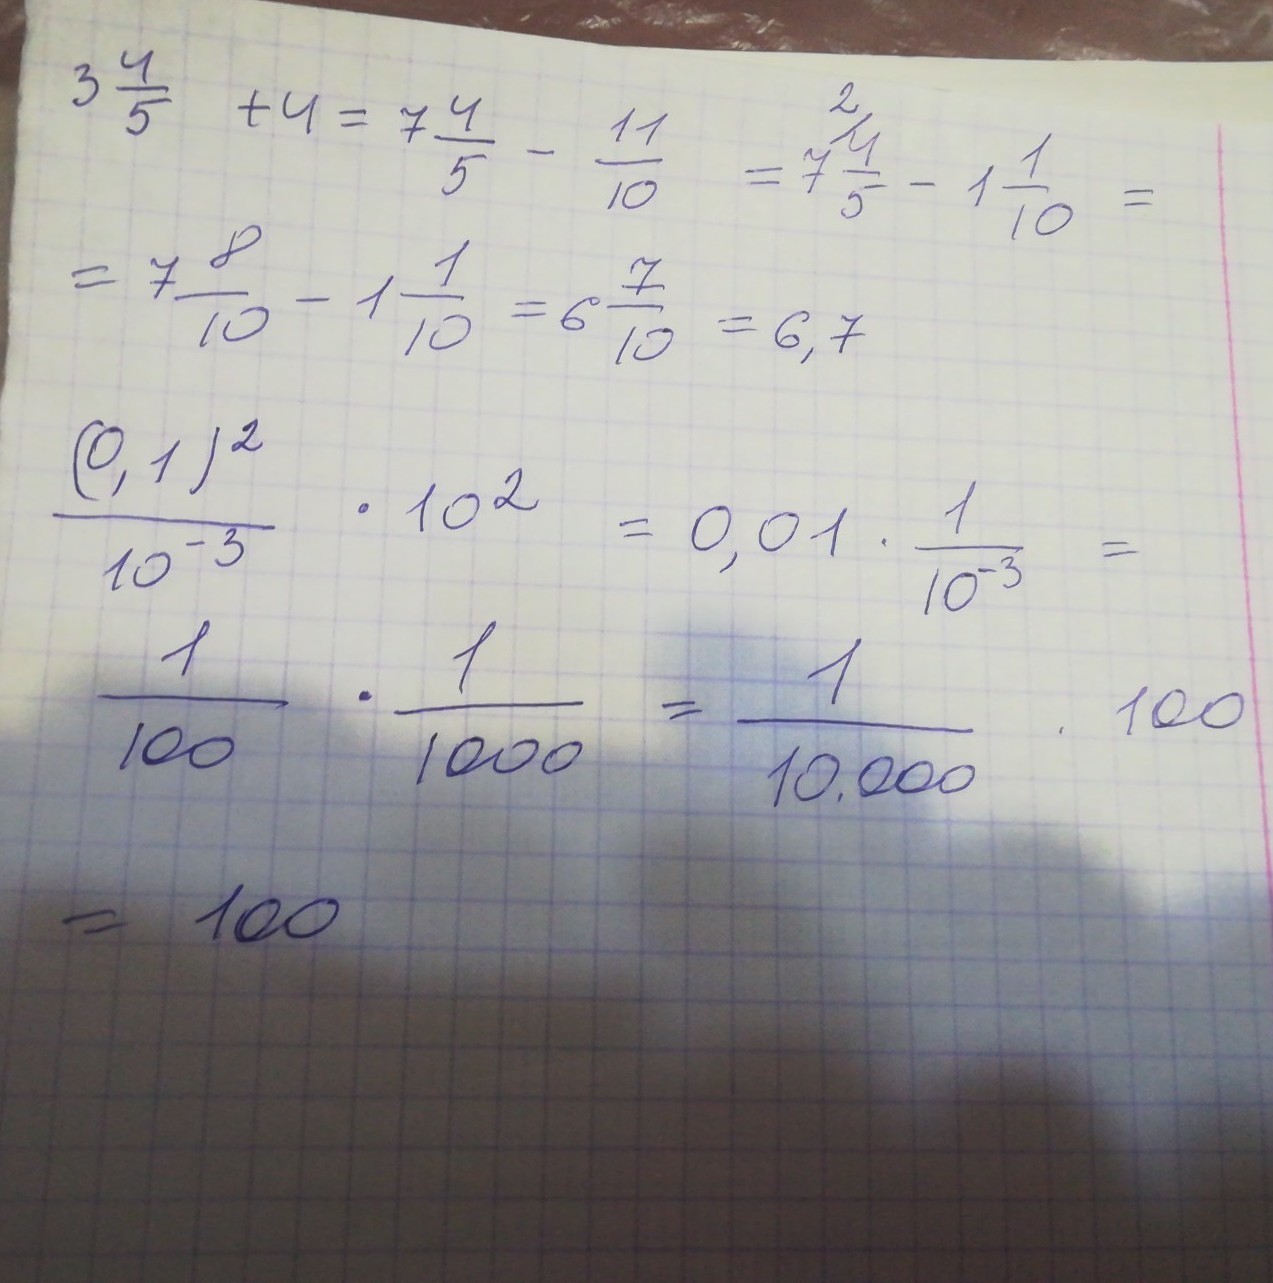 3 4/5 + 4 = 7 4/5 - 11/10 = 7 4/5 2/ - 1 1/10 =
= 7 8/10 - 1 1/10 = 6 7/10 = 6,7
(0,1)²/10⁻³ · 10² = 0,01 · 1/10⁻³ =
1/100 · 1/1000 = 1/10.000 · 100
= 100